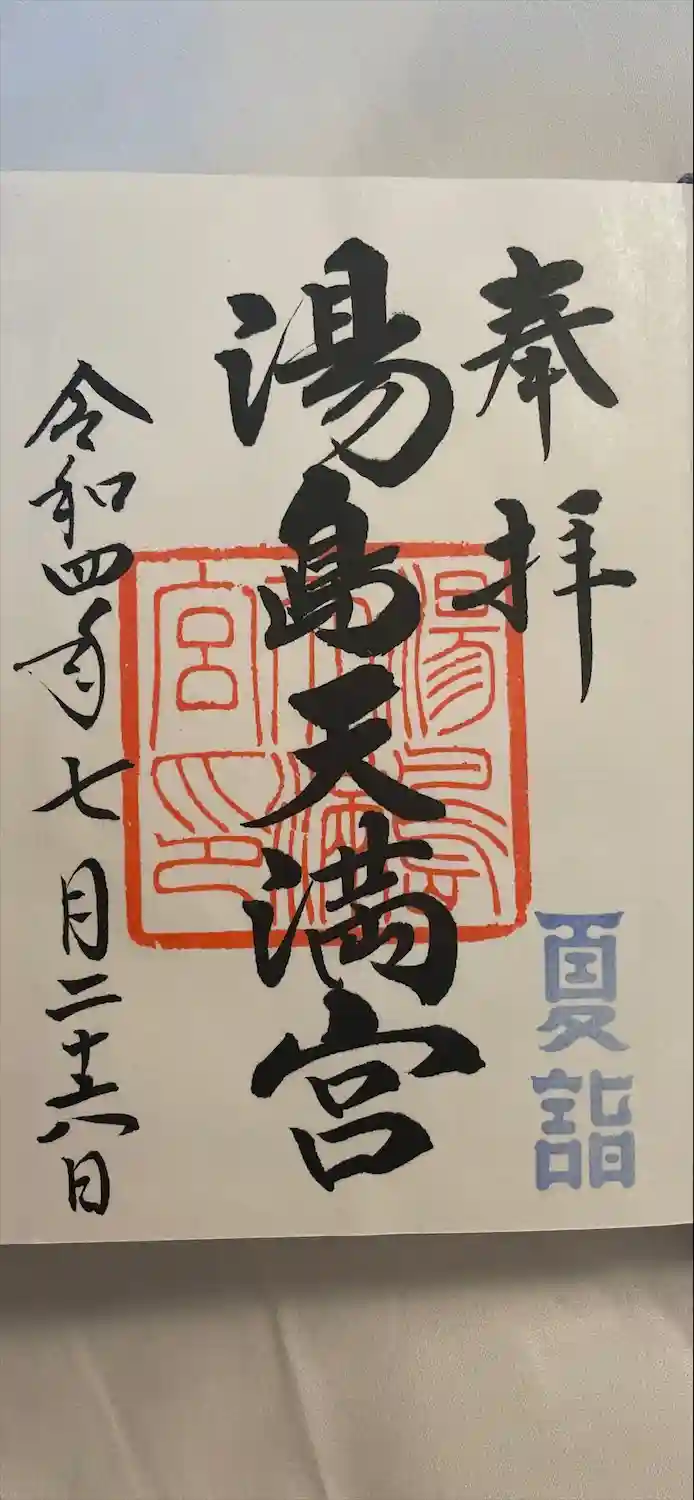 奉拝
夏詣
湯島天満宮
湯島
天満
宮印
令和四年七月二十六日